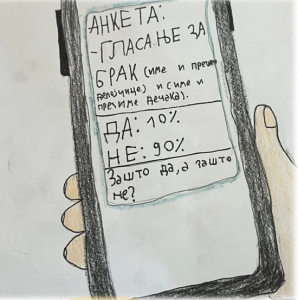 АНКЕТА:
-ГЛАСАЊЕ ЗА
БРАК (име и презиме
девојчице) и (име и
презиме дечака).
ДА: 10%
НЕ: 90%
Зашто да, а зашто
не?